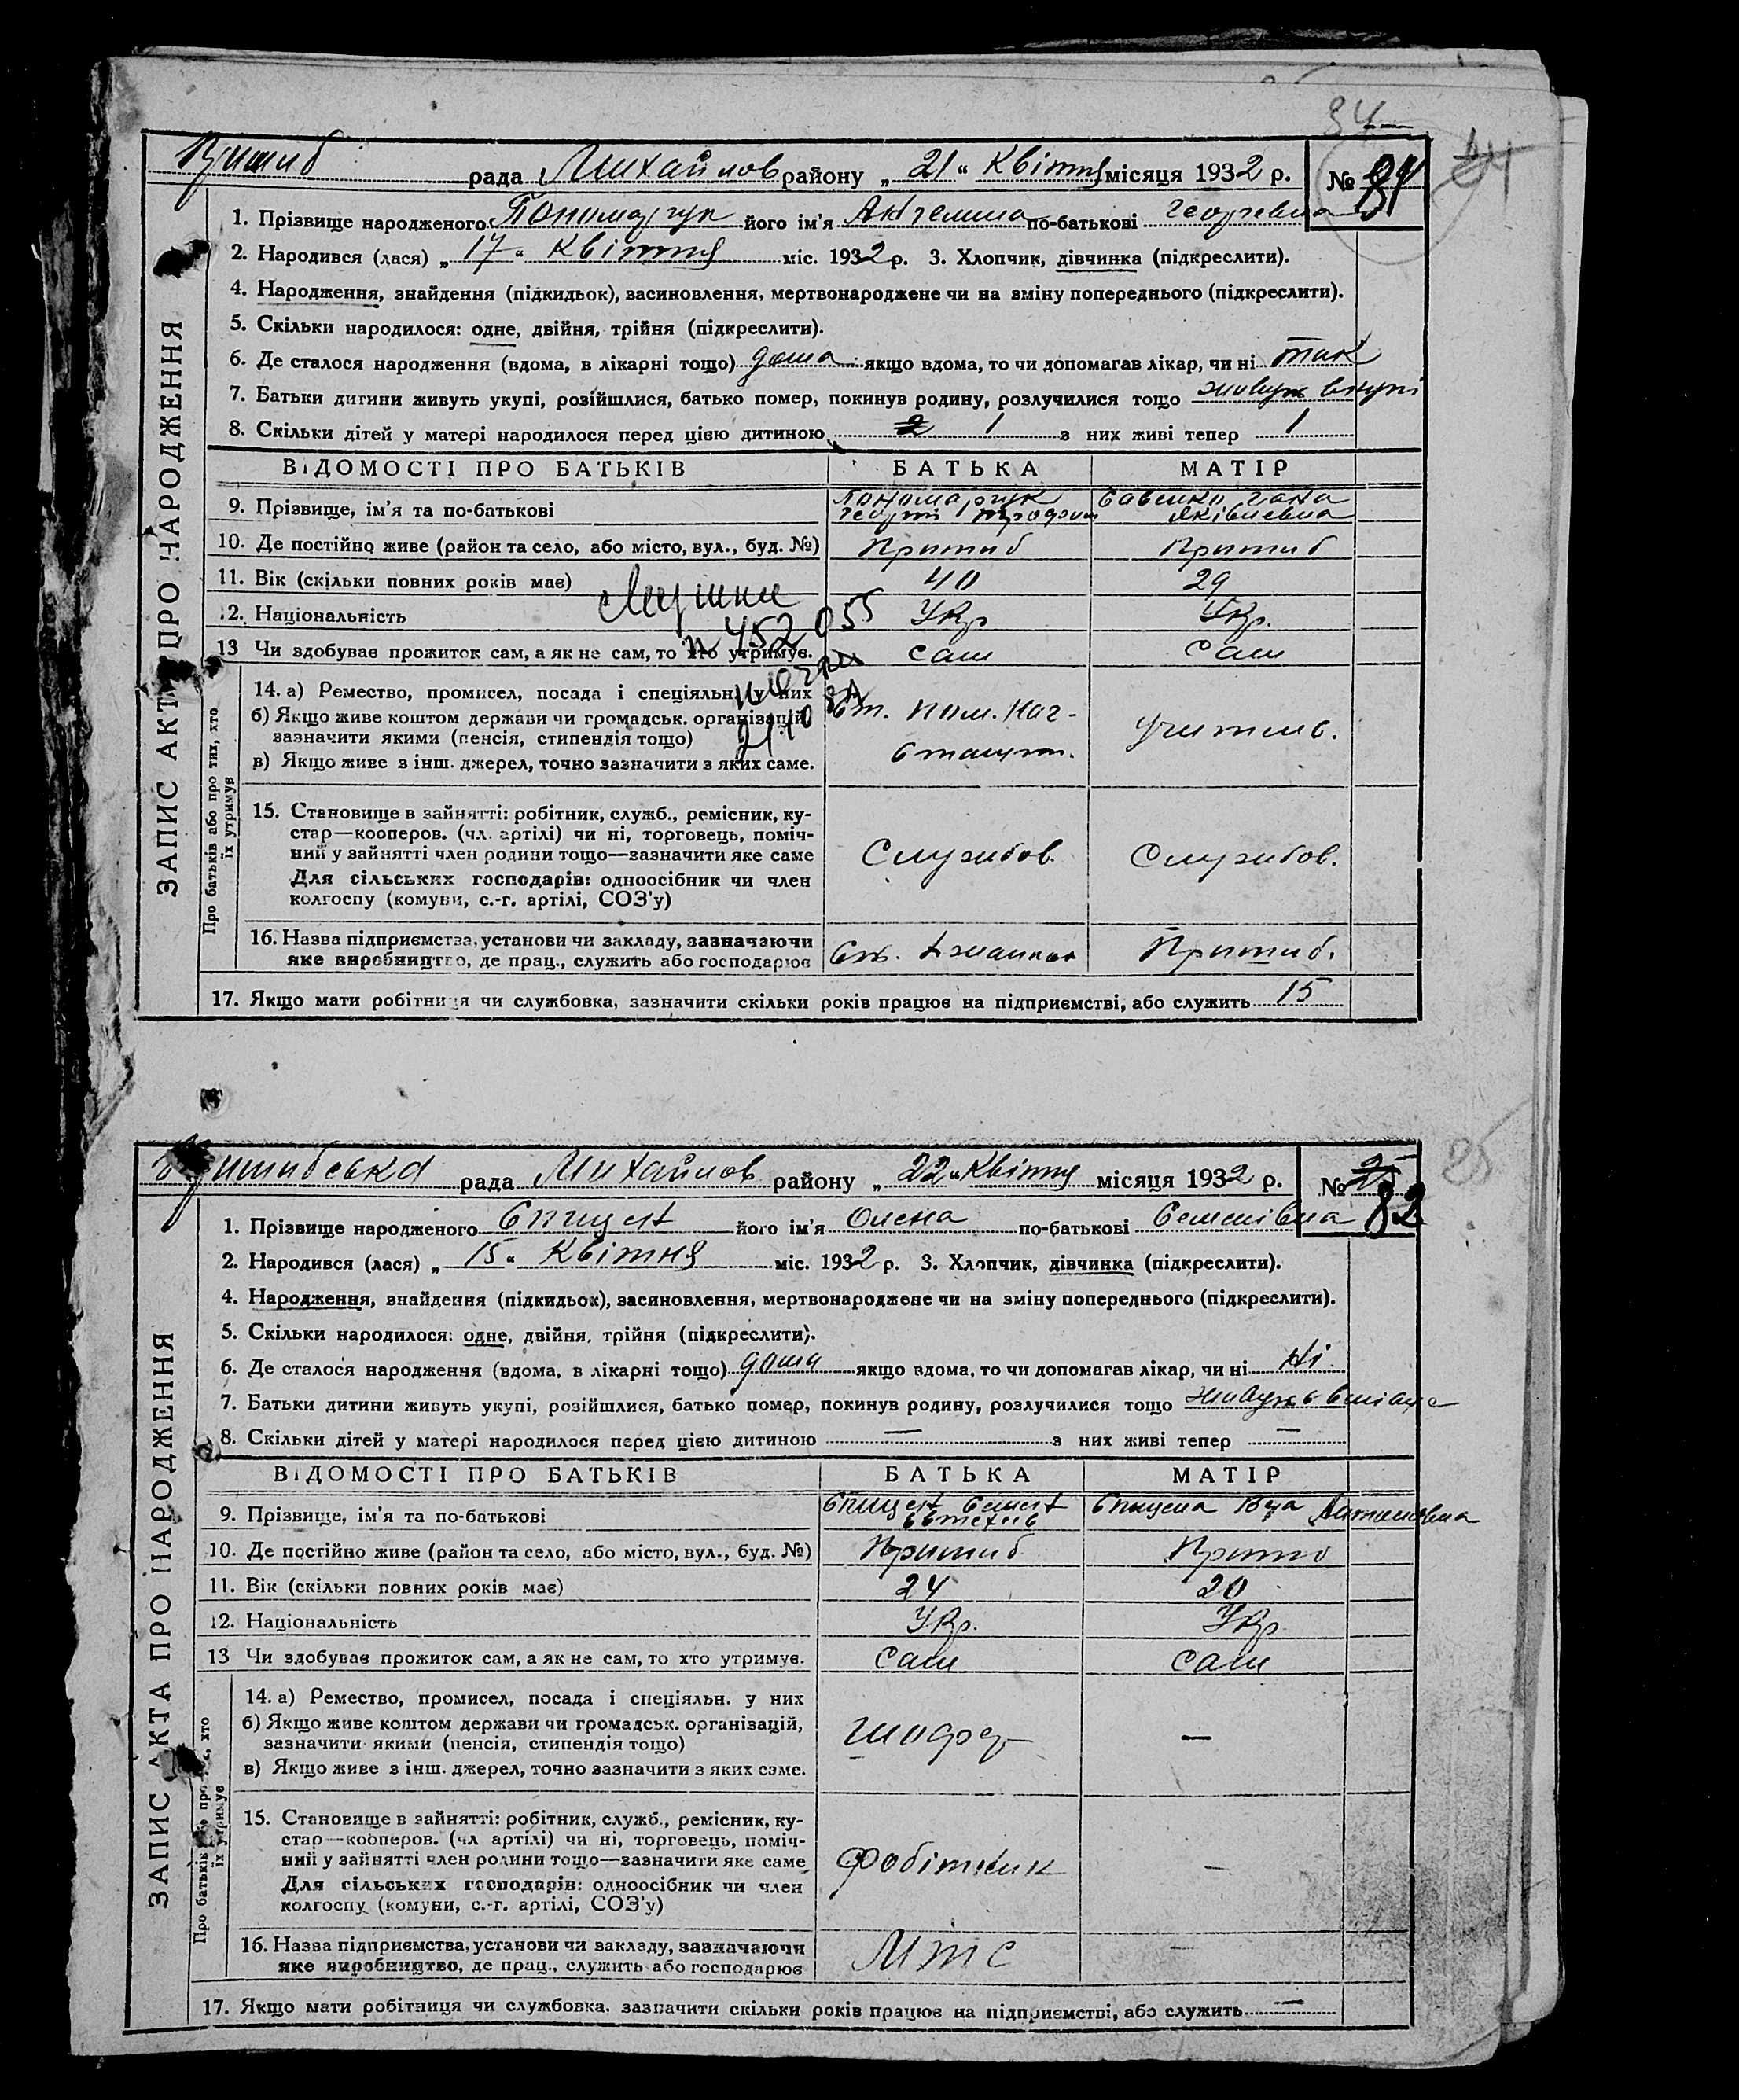 34
Пришиб рада Михайлов району „ 21 “ Квітня місяця 1932 р. № 81
24
1. Прізвище народженого Пономарчук його ім'я по-батькові Георгевна
2. Народився (лася) „ 17 “ Квітня міс. 1932 р. 3. Хлопчик, дівчинка (підкреслити).
4. Народження, знайдення (підкидьок), засиновлення, мертвонароджене чи на зміну попереднього (підкреслити).
5. Скільки народилося: одне, двійня, трійня (підкреслити).
6. Де сталося народження (вдома, в лікарні тощо) дома якщо вдома, то чи допомагав лікар, чи ні так
7. Батьки дитини живуть укупі, розійшлися, батько помер, покинув родину, розлучилися тощо живуть вкупі
8. Скільки дітей у матері народилося перед цією дитиною 2 1 з них живі тепер 1
ВІДОМОСТІ ПРО БАТЬКІВ БАТЬКА МАТІР
9. Прізвище, ім'я та по-батькові Пономарчук Георгій Трофим Савенко Гана Яківлевна
10. Де постійно живе (район та село, або місто, вул., буд. №) Пришиб Пришиб
11. Вік (скільки повних років має) 40 29
12. Національність Укр Укр.
13 Чи здобував прожиток сам, а як не сам, то хто утримує. сам сам
№ 452055
14. а) Ремество, промисел, посада і спеціяльн. у них
б) Якщо живе коштом держави чи громадськ. організацій, зазначити якими (пенсія, стипендія тощо)
в) Якщо живе з інш. джерел, точно зазначити з яких саме.
Ст. пом. нач. учитель.
15. Становище в зайнятті: робітник, служб., ремісник, ку-
стар—кооперов. (чл. артілі) чи ні, торговець, поміч-
ний у зайнятті член родини тощо—зазначити яке саме
Службов. Службов.
Для сільських господарів: одноосібник чи член
колгоспу (комуни, с.-г. артілі, СОЗ'у)
16. Назва підприємства, установи чи закладу, зазначаючи
яке виробництво, де прац., служить або господарює
Пришиб.
17. Якщо мати робітниця чи службовка, зазначити скільки років працює на підприємстві, або служить 15
ЗАПИС АКТА ПРО НАРОДЖЕННЯ
Про батьків або про тих, хто
їх утримує
Пришибська рада Михайлов району „ 22 “ Квітня місяця 1932 р. № 25 82
25
1. Прізвище народженого Спицен його ім'я Олена по-батькові Семенівна
2. Народився (лася) „ 15 “ Квітня міс. 1932 р. 3. Хлопчик, дівчинка (підкреслити).
4. Народження, знайдення (підкидьок), засиновлення, мертвонароджене чи на зміну попереднього (підкреслити).
5. Скільки народилося: одне, двійня, трійня (підкреслити).
6. Де сталося народження (вдома, в лікарні тощо) дома якщо вдома, то чи допомагав лікар, чи ні ні
7. Батьки дитини живуть укупі, розійшлися, батько помер, покинув родину, розлучилися тощо живуть
8. Скільки дітей у матері народилося перед цією дитиною — з них живі тепер —
ВІДОМОСТІ ПРО БАТЬКІВ БАТЬКА МАТІР
9. Прізвище, ім'я та по-батькові Спицен Семен Спицена
10. Де постійно живе (район та село, або місто, вул., буд. №) Пришиб Пришиб
11. Вік (скільки повних років має) 24 20
12. Національність Укр. Укр.
13 Чи здобував прожиток сам, а як не сам, то хто утримує. сам сам
14. а) Ремество, промисел, посада і спеціяльн. у них
б) Якщо живе коштом держави чи громадськ. організацій,
зазначити якими (пенсія, стипендія тощо)
шофер —
в) Якщо живе з інш. джерел, точно зазначити з яких саме.
15. Становище в зайнятті: робітник, служб., ремісник, ку-
стар—кооперов. (чл артілі) чи ні, торговець, поміч-
ний у зайнятті член родини тощо—зазначити яке саме
робітник —
Для сільських господарів: одноосібник чи член
колгоспу (комуни, с.-г. артілі, СОЗ'у)
16. Назва підприємства, установи чи закладу, зазначаючи
яке виробництво, де прац., служить або господарює
МТС —
17. Якщо мати робітниця чи службовка, зазначити скільки років працює на підприємстві, або служить —
ЗАПИС АКТА ПРО НАРОДЖЕННЯ
Про батьків або про тих, хто
їх утримує